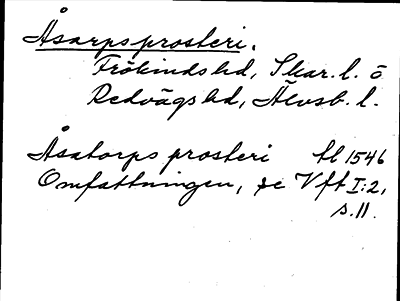 Åsarpsprosteri.
Frökindshd, Skar. l. o
Redvägshd, Älvsb. l.
Åsatorps prosteri tl 1546
Omfattningen, se Vft I:2,
s. 11.